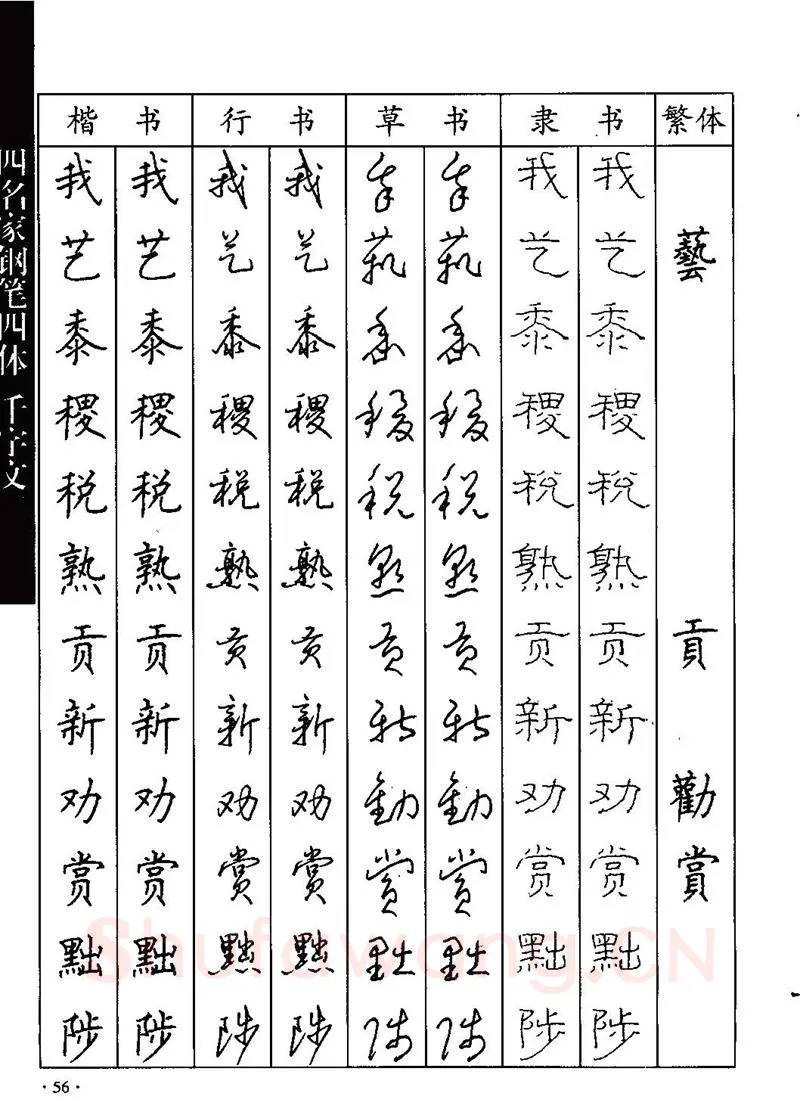 四名家钢笔四体 千字文
楷书 行书 草书 隶书 繁体
我 我 我 我 我 我 我 我
艺 艺 艺 艺 艺 艺 艺 艺 藝
黍 黍 黍 黍 黍 黍 黍 黍
稷 稷 稷 稷 稷 稷 稷 稷
税 税 税 税 税 税 税 税
熟 熟 熟 熟 熟 熟 熟 熟
贡 贡 贡 贡 贡 贡 贡 贡 貢
新 新 新 新 新 新 新 新
劝 劝 劝 劝 劝 劝 劝 劝 勸
赏 赏 赏 赏 赏 赏 赏 赏 賞
黜 黜 黜 黜 黜 黜 黜 黜
陟 陟 陟 陟 陟 陟 陟 陟
Shufawang.CN
· 56 ·